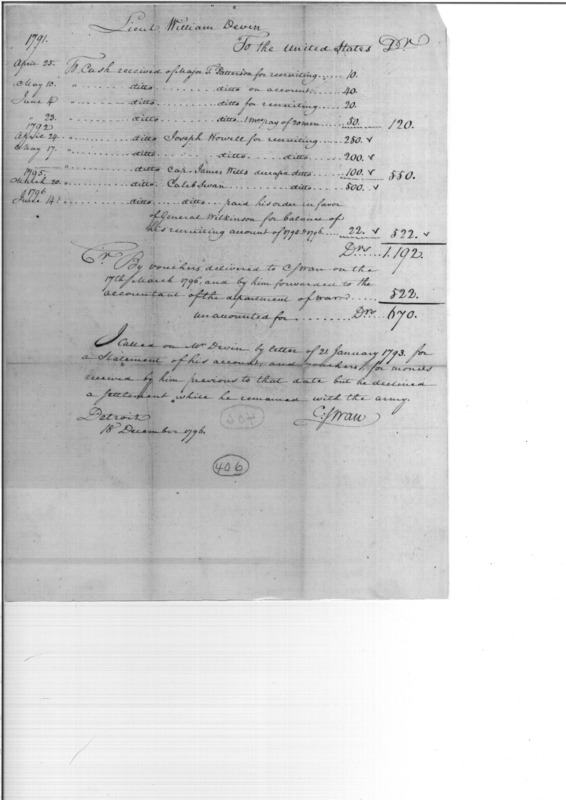 Lieut William Devin
To the United States Dr
1791.
April 25. To Cash received of Major J. Patterson for recruiting .... 10.
May 10. " ..... ditto ........ ditto on account .... 40.
June 4 " ..... ditto ........ ditto for recruiting .... 20.
" 23. " ..... ditto ........ ditto 1 Mos pay of 20 men .. 50. 120.
1792
April 24. " ..... ditto Joseph Howell for recruiting .... 250. v
May 17. " ..... ditto ........ ditto .... ditto .... 200. v
" ..... ditto Cap. James Wells ditto .... 100. v 550.
1795.
March 20. " ..... ditto. Caleb Swan .... ditto .... 500. v
1796
June 14. " ..... ditto .... ditto .. paid his order in favor
of General Wilkinson for balance of
his recruiting account of 1795 & 1796 .. 22. v 522. v
Drs. 1.192.
Cr. By vouchers delivered to C. Swan on the
17th March 1796, and by him forwarded to the
accountant of the department of war .... 522.
unaccounted for ........ Drs. 670.
I called on Mr Devin by letter of 21 January 1793. for
a statement of his accounts, and vouchers, for monies
received by him previous to that date but he declined
a settlement while he remained with the army.
Detroit C. Swan
18 December 1796.
406